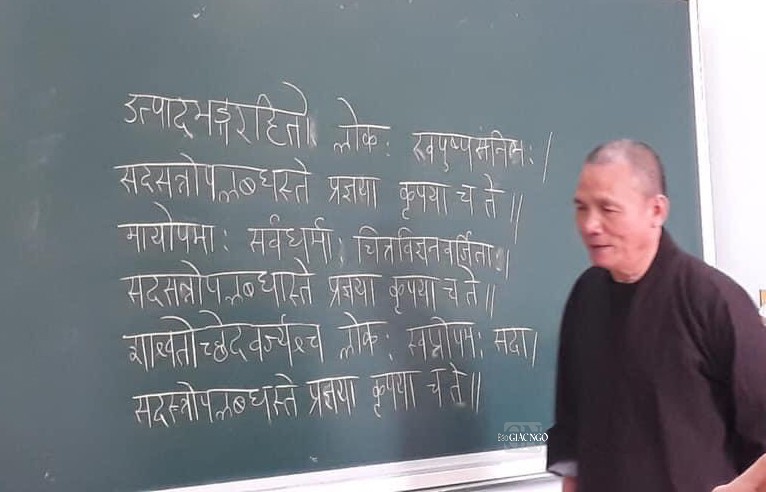 उत्पादभङ्गरहितो लोकः खपुष्पसंनिभः।
सदसन्नोपलब्धस्ते प्रज्ञया कृपया च ते॥
मायोपमाः सर्वधर्माः चित्तविज्ञानवर्जिताः।
सदसन्नोपलब्धास्ते प्रज्ञया कृपया च ते॥
शाश्वतोच्छेदवर्ज्यश्च लोकः स्वप्नोपमः सदा।
सदसन्नोपलब्धस्ते प्रज्ञया कृपया च ते॥
Báo GIÁC NGỘ